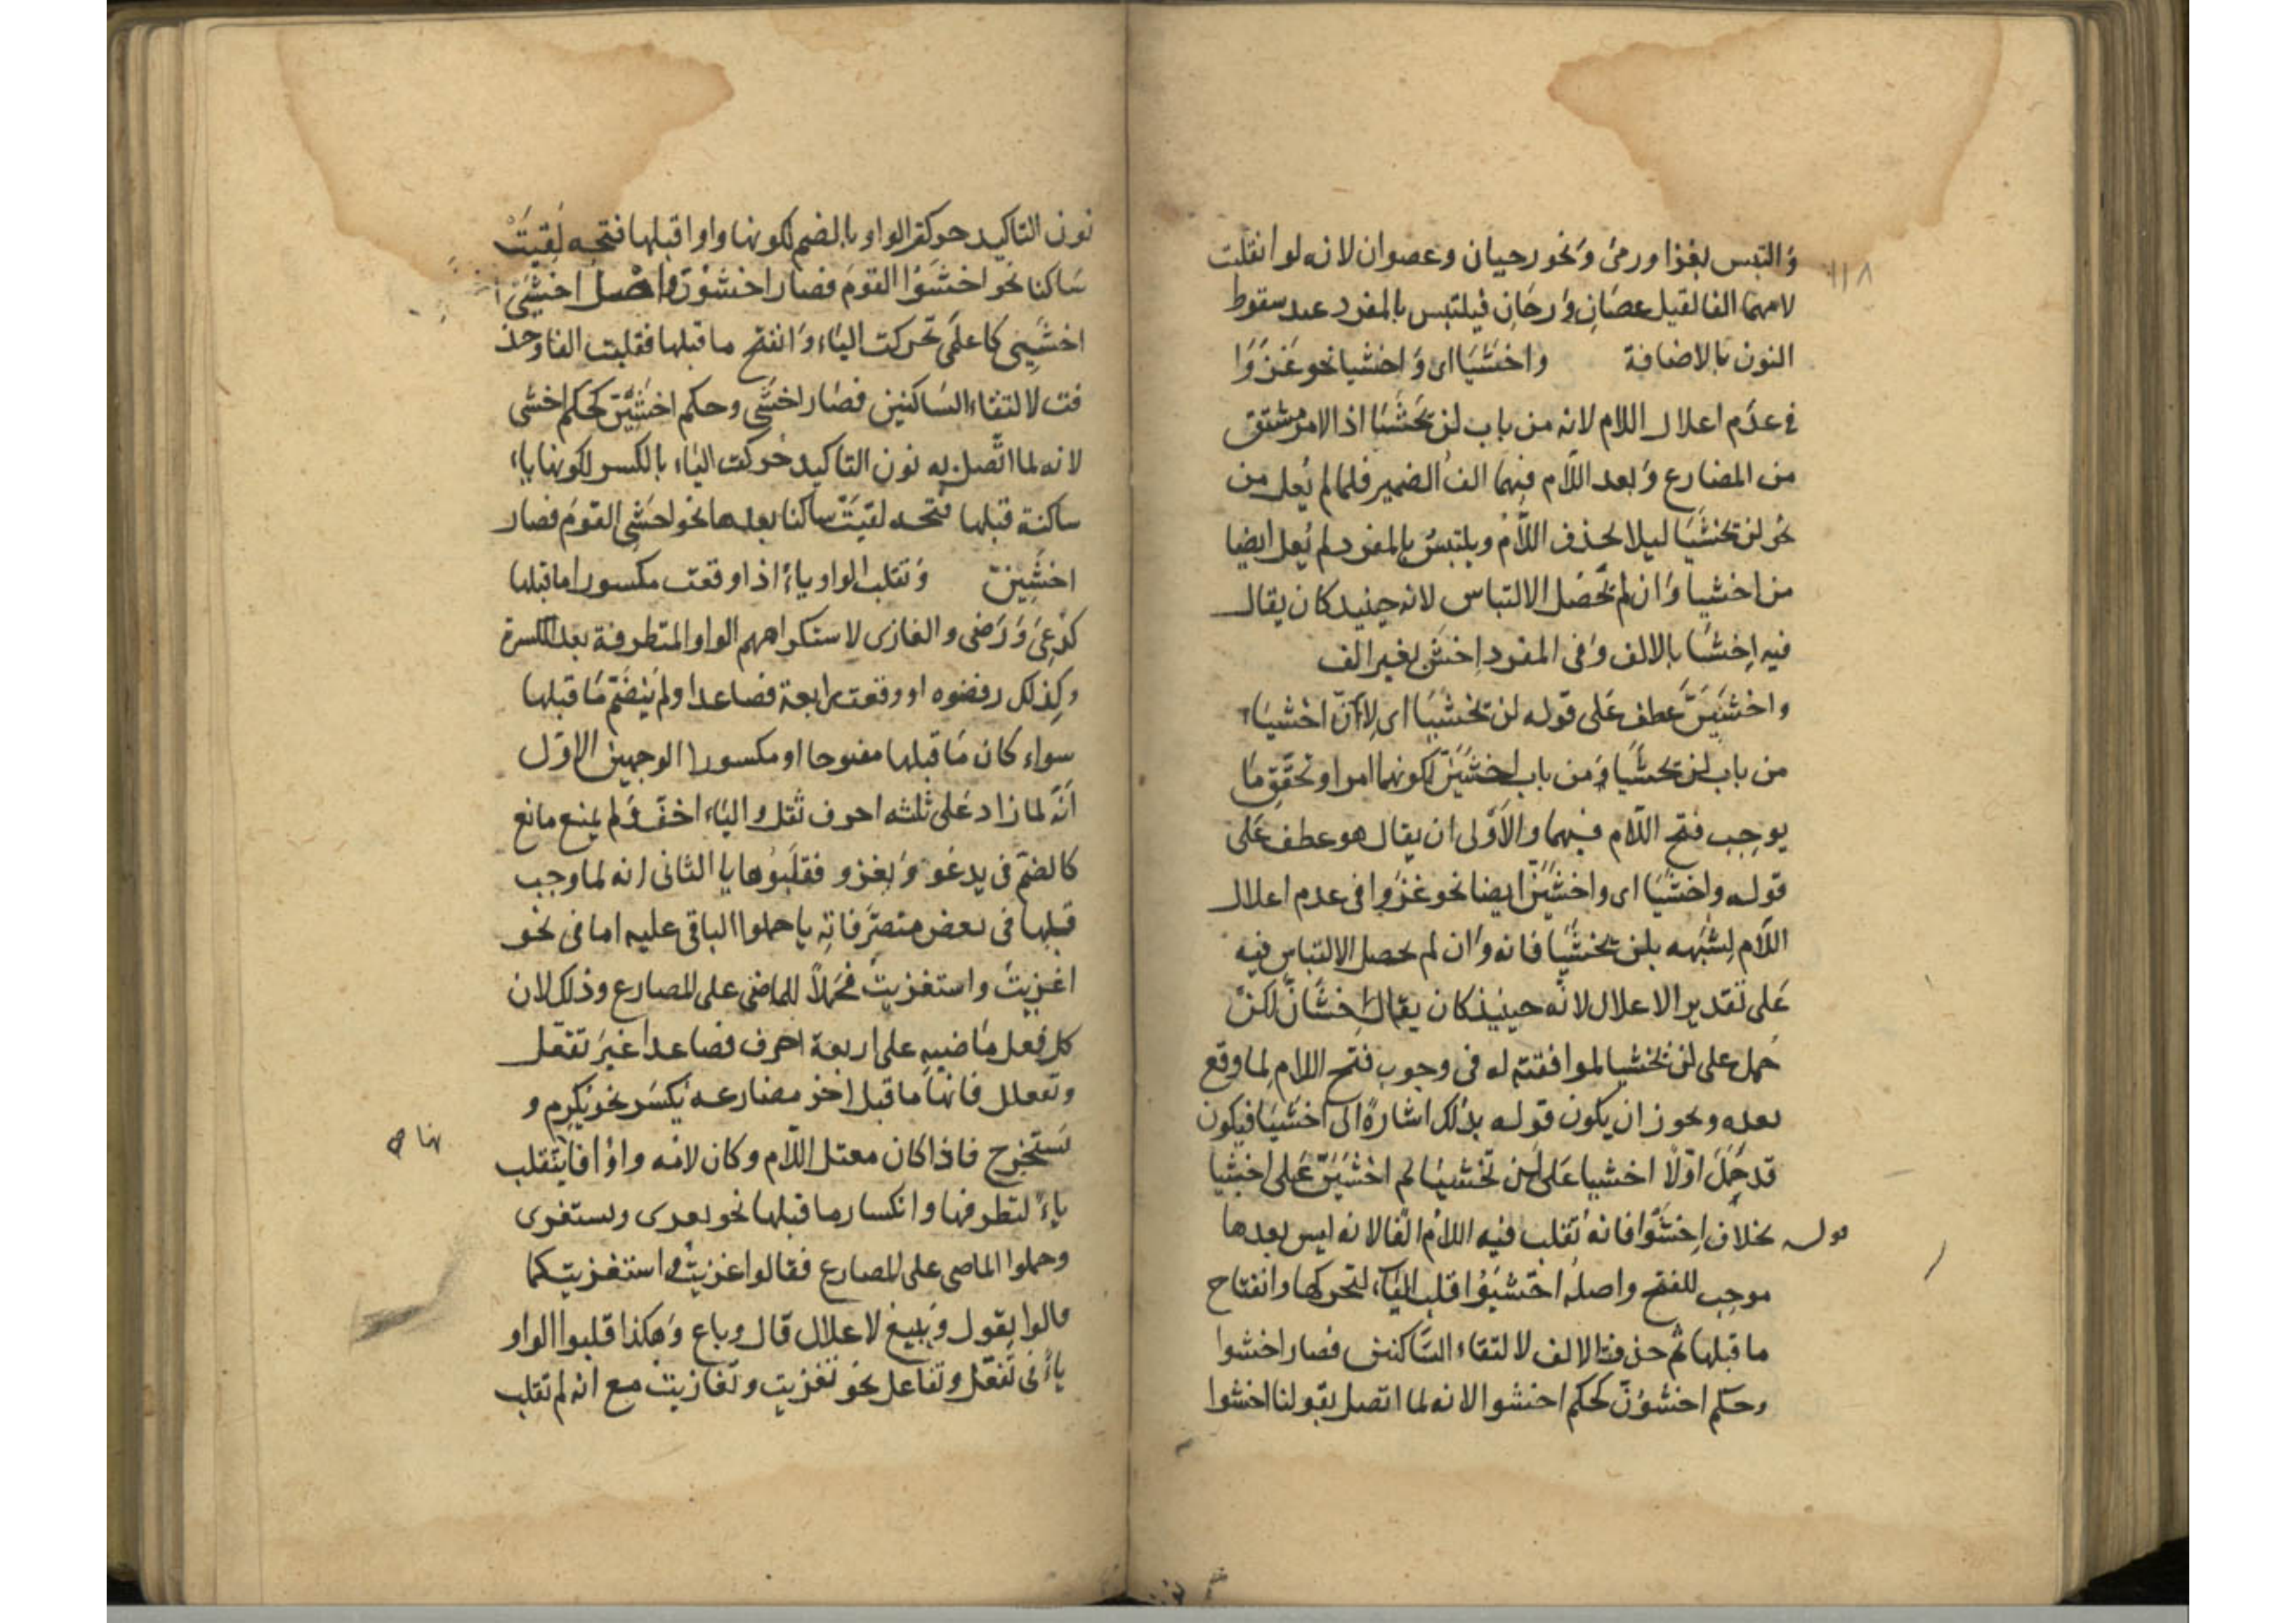 ١١٨
وَالتبس بغزا ورمىٰ وَنحو رحيان وعصوان لانه لو انقلبت
لامهما الفا لقيل عصَانِ وَرحَانِ فيلتبس بالمفرد عند سقوط
النون بالاضافة واخشَيَا اى وَاخشيا نحو غَزَوَا
فى عدَم اعلال اللام لانه من باب لن تخشَيَا اذ الامر مشتق
من المضارع وَبعد اللّام فيهما الفُ الضمير فلما لم يُعل من
نحو لن تخشَيَا ليلا يحذف اللّامُ ويلتبسُ بالمفرد لم يُعل ايضا
من اخشيا وَان لم يحصُل الالتباس لانه حينيد كان يقال
فيه اِخشَا بالالف وَفى المفرد اِخشَ بغير الف
واخشيَنَّ عطف عَلى قوله لن تخشيَا اى لِاَنّ اخشيَا
من باب لن تخشيَا وَمن باب اخشيَنّ لكونهما امرا وتحقّق مَا
يوجب فتح اللّام فيهما والاَوْلى ان يقال هو عطف عَلى
قوله واخشيَا اى واخشيَنّ ايضا نحو غزوا فى عدم اعلال
اللّام لشَبَهه بلن تخشيَا فانه وَان لم يحصل الالتباس فيه
عَلى تقدير الاعلال لانّه حينيذ كان يقال اِخشَانّ لكنْ
حُمل على لن تخشيا لموافقته له فى وجوب فتح اللام لما وقع
بعده ويجوز ان يكون قوله بذلك اشارةً الى اخشيَا فيكون
قد حَمَلَ اوّلًا اخشيا عَلى لن تخشيَا ثم اخشيَنّ عَلى اخشيا
قوله بخلاف اِخشَوْا فانه تُقلب فيه اللّامُ الفا لانه ليس بعدها
موجب للفتح واصلُه اخشيُوا قلب اليَاء لتحركها وانفتاح
ما قبلها ثم حذفت الالف لالتقاء السَّاكنين فصار اخشوا
وحكم اخشوُنّ كحكم اخشوا لانه لما اتصل بقولنا اخشوا
نون التاكيد حركت الواو بالضم لكونها واوا قبلها فتحه لَقِيَتْ
سَاكنا نحو اخشَوُا القومَ فصار اخشوُنّ واصل اخشَىْ
اخشَيِى كاعلَمِى تحركت اليَاء وَانفتح ما قبلها فقلبت الفا وحذ
فت لالتقاء السَاكنين فصَار اخشَى وحكم اخشَيِنّ كحكم اخشى
لانه لما اتّصل به نون التاكيد حُركت اليَاء بالكسر لكونها ياء
ساكنة قبلها فتحه لقيَتْ ساكنا بعدها نحو اخشَىِ القومَ فصار
اخشَيِنّ وَتقلب الواو ياءً اذا وقعت مكسورا ما قبلها
كدُعِىَ وَرَضى والغازى لاستكراههم الواو المتطرفة بعد الكسرة
وكذلك رفضوه او وقعت رابعة فصاعدا ولم يَنضَمّ مَا قبلها
سواء كان مَا قبلها مفتوحا او مكسورا لوجهين الاوّل
اَنّه لما زاد عَلى ثلثه احرف ثقل والياء اخفّ وَلم يمنع مانع
كالضم فى يدعُو وَيغزو فقلَبُوها يا الثانى انه لما وجب
قبلها فى بعض متصَرّفاتِه يا حملوا الباقى عليه اما فى نحو
اغزيتُ واستغزيتُ فحَملًا للماضى على المضارع وذلك لان
كل فعل مَاضيه على اربعة احرف فصاعدا غيرَ تفعّل
وتفعلل فانّها ما قبل اخر مضارعه يُكسَر نحو يُكرم و
يَستخرج فاذا كان معتل اللّام وكان لامُه واوًا فانها تنقلب
ياءً لتطرفها وانكسار ما قبلها نحو يغزى ويستغزى
وحملوا الماضى على المضارع فقالوا اغزيت واستغزيت كما
قالوا يقول وَيبيع لاعلال قال وباع وَهكذا قلبوا الواو
ياءً فى تفعّل وتفاعل نحو تغزيت وتغازيت مع انه لم تقلب